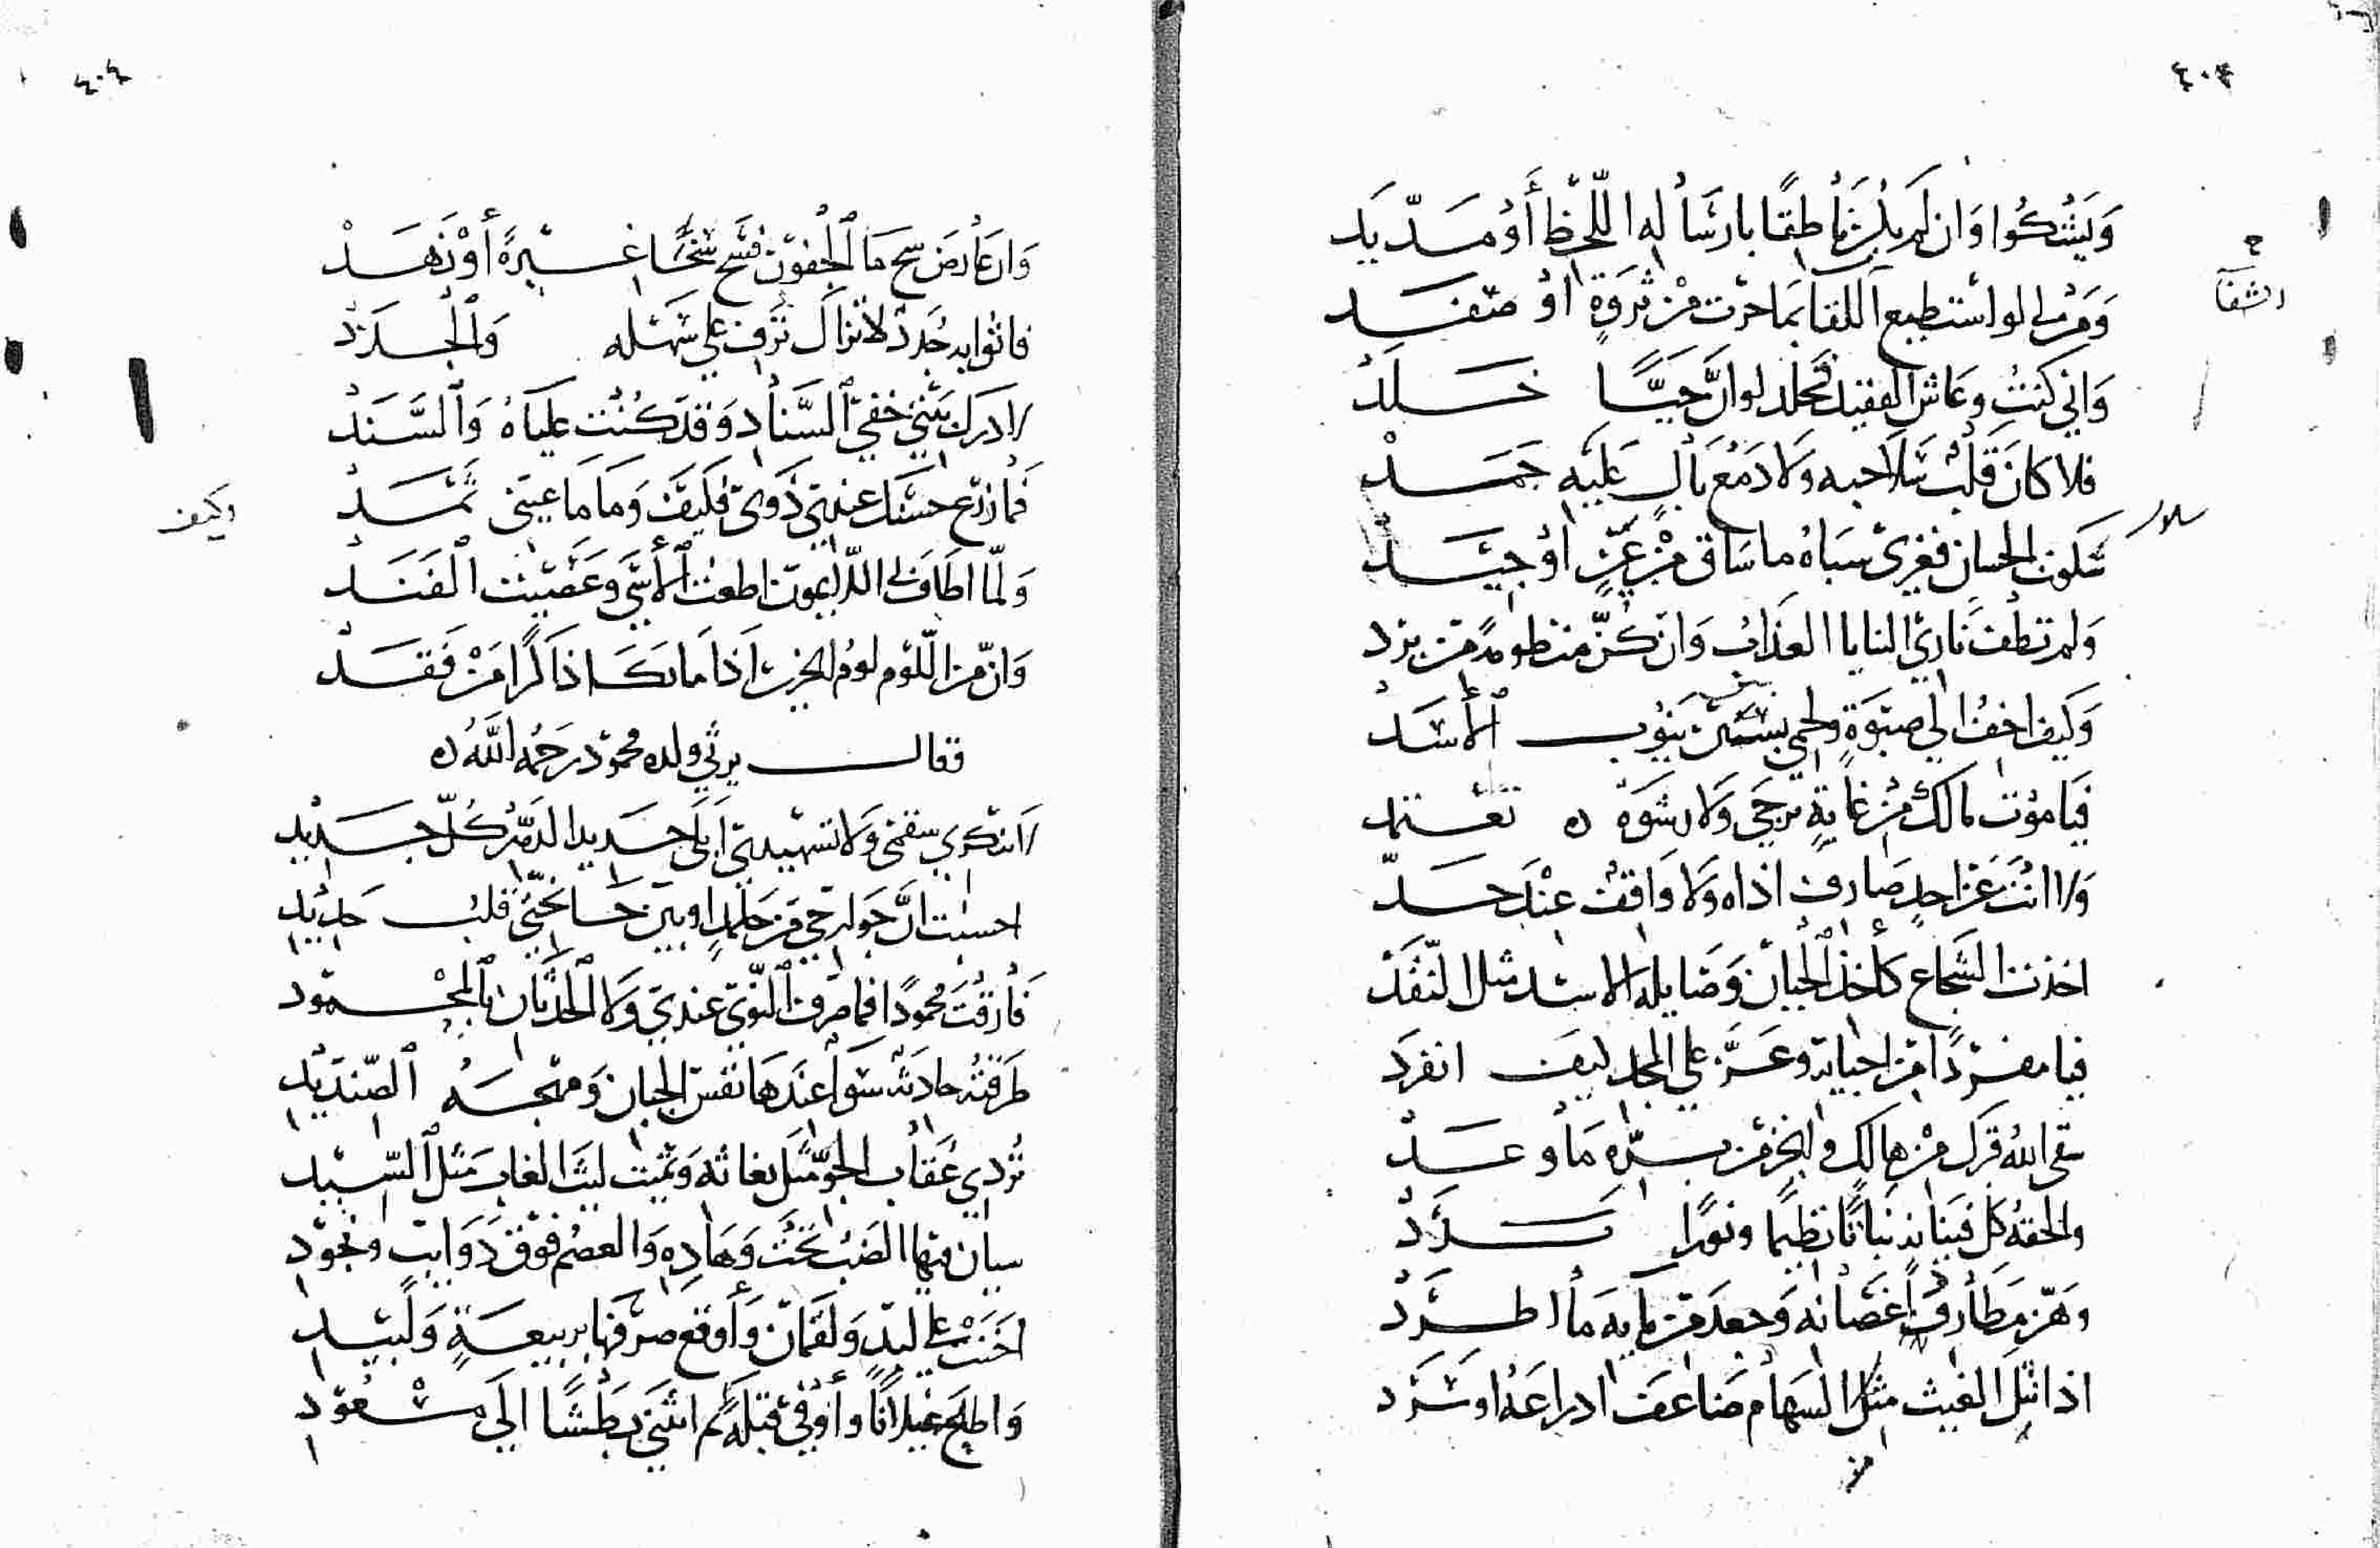 ٤٠٣
وَيَشْكُوا وَان لم يكن نَاطِقًا بارسَاله اللّحْظ أَوْ مَدّ يَد
وَمَن لي لو استطيع اللقا بمَا حزت مِنْ ثروَةٍ اوْ صفَد
الشفا
وَاني كنتُ وعَاش الفقيد مخلد لو انّ حَيًّا خَلَدْ
فلا كانَ قَلْبٌ سَلا حبه وَلا دَمْع بَالٍ عَليْه جَمَدْ
سلوت الحسان فغيرى سبَاهُ ما سَاق مِنْ عَينٍ اوْ جَيَد
سلوت
وَلم تطف نَاري الثنايا العذاب وَان كنّ منظومةً من برَد
وَكيف اخف الي صبوَةٍ ولحمي بين نيُوب الأسَد
فيَا مَوْت مَالكَ مِنْ غايَةٍ ترجى وَلا رشوَةٌ تعتمد
وَلا انتَ عَن احدٍ صَارف اذاه وَلا وَاقفٌ عنْدَ حَدّ
اخذت الشجاع كأخذ الجبان وَصَايلة الاسد مثل النّقَدْ
فيَا مفردًا من احبايه وعَزّ علي المجد كيف انفرَد
سقى اللهُ قبرك مِنْ هالكٍ وانجز من بِرّه مَا وعَدْ
والحقهُ كل فينانه نباتًا نظيمًا ونورًا بَرَدْ
وَهَزّ مطَارف أغصَانه وَجعد من مَايه مَا اطرَدْ
اذا نثل الغيث مثل السهَام ضَاعف ادراعَهُ اوْ سَرَد
من
٤٠٤
وَان عَارض سح مَا الجفون فسَح سخًا غيْرةً أوْ زَهَدْ
فاثوابه جُدَدٌ لا تزال تَرف علي سَهْله وَالْجَلَدْ
لادرك بثّي خفي السّنَاد وَقد كُنْت عليَاهُ وَالسَّنَدْ
فما زرع حسنك عندي ذوى فكيف وَمَا مَا عيني ثَمَدْ
وكيف
وَلمّا اطَاف بي اللّايمون اطعْت الأسَى وَعَصَيْت الفَنَدْ
وَان مِن اللّوْم لومُ الحزين اذَا مَا بَكَا ذاكرًا مَنْ فَقَدْ
فقال يرثي ولده محمود رَحمهُ اللهُ
لا تنكري سقمى وَلا تسهيدي ابلَى جَديد الدّهر كلّ جَديد
احسبت انّ جَوارحي مِن جلمدٍ او بين جَانحتيّ قلبُ حَديد
فَارقْت محمودًا فما صَرف النّوَى عندي وَلا الحدثَان بالمحْمود
طرقته حادثة سَوا عندهَا نفس الجبان وَمهجَةُ الصّنديد
تُردي عُقاب الجوّ مثل بغاثه وَتميت ليث الغاب مثل السّيد
سيان فيها الضَب تحْت وَهَادِه وَالعصم فوق ذَوايب ونجود
اخنَت علي لبد وَلقمَانٍ وَأوقع صرْفهَا بربيعَةٍ وَلبيد
وَاطاح غيلانًا وأوْفى قبلهُ ثم انثَنى بطشًا الَي مسْعُود